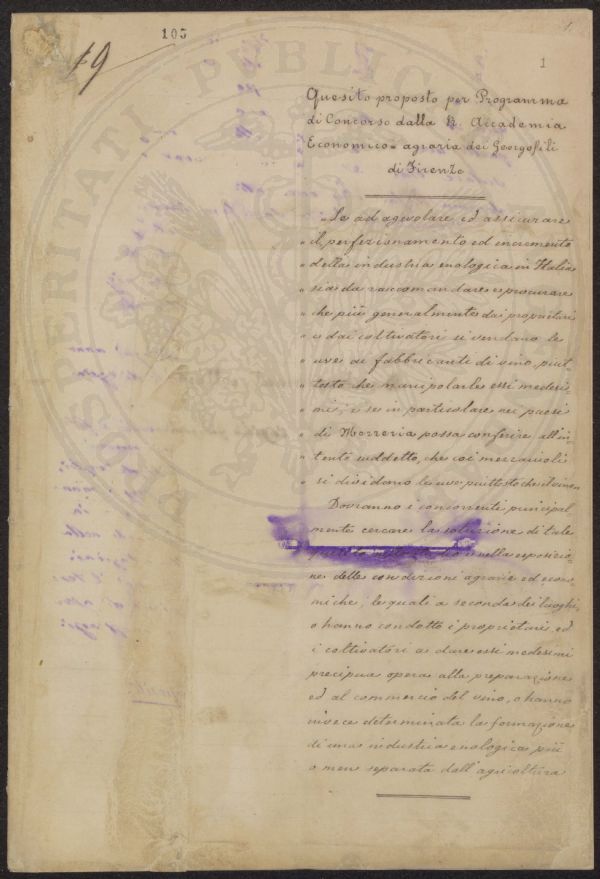 105
19
1
1
Quesito proposto per Programma
di Concorso dalla R. Accademia
Economico-agraria dei Georgofili
di Firenze
„ Se ad agevolare, ed assicurare
„ il perfezionamento ed incremento
„ della industria enologica in Italia
„ sia da raccomandare e procurare
„ che più generalmente dai proprietari
„ e dai coltivatori si vendano le
„ uve ai fabbricanti di vino, piut-
„ tosto che manipolarle essi medesi-
„ mi; e se in particolare nei paesi
„ di Mezzeria possa conferire all'in-
„ tento suddetto, che coi mezzaiuoli
„ si dividano le uve piuttosto che il vino „
Dovranno i concorrenti principal
mente cercare la soluzione di tale
nella esposizio-
ne delle condizioni agrarie ed econo
miche, le quali a seconda dei luoghi,
o hanno condotto i proprietari ed
i coltivatori a dare essi medesimi
precipua opera alla preparazione
ed al commercio del vino, o hanno
invece determinata la formazione
di una industria enologica più
o men separata dall'agricoltura
PROSPERITATI PUBLICAE